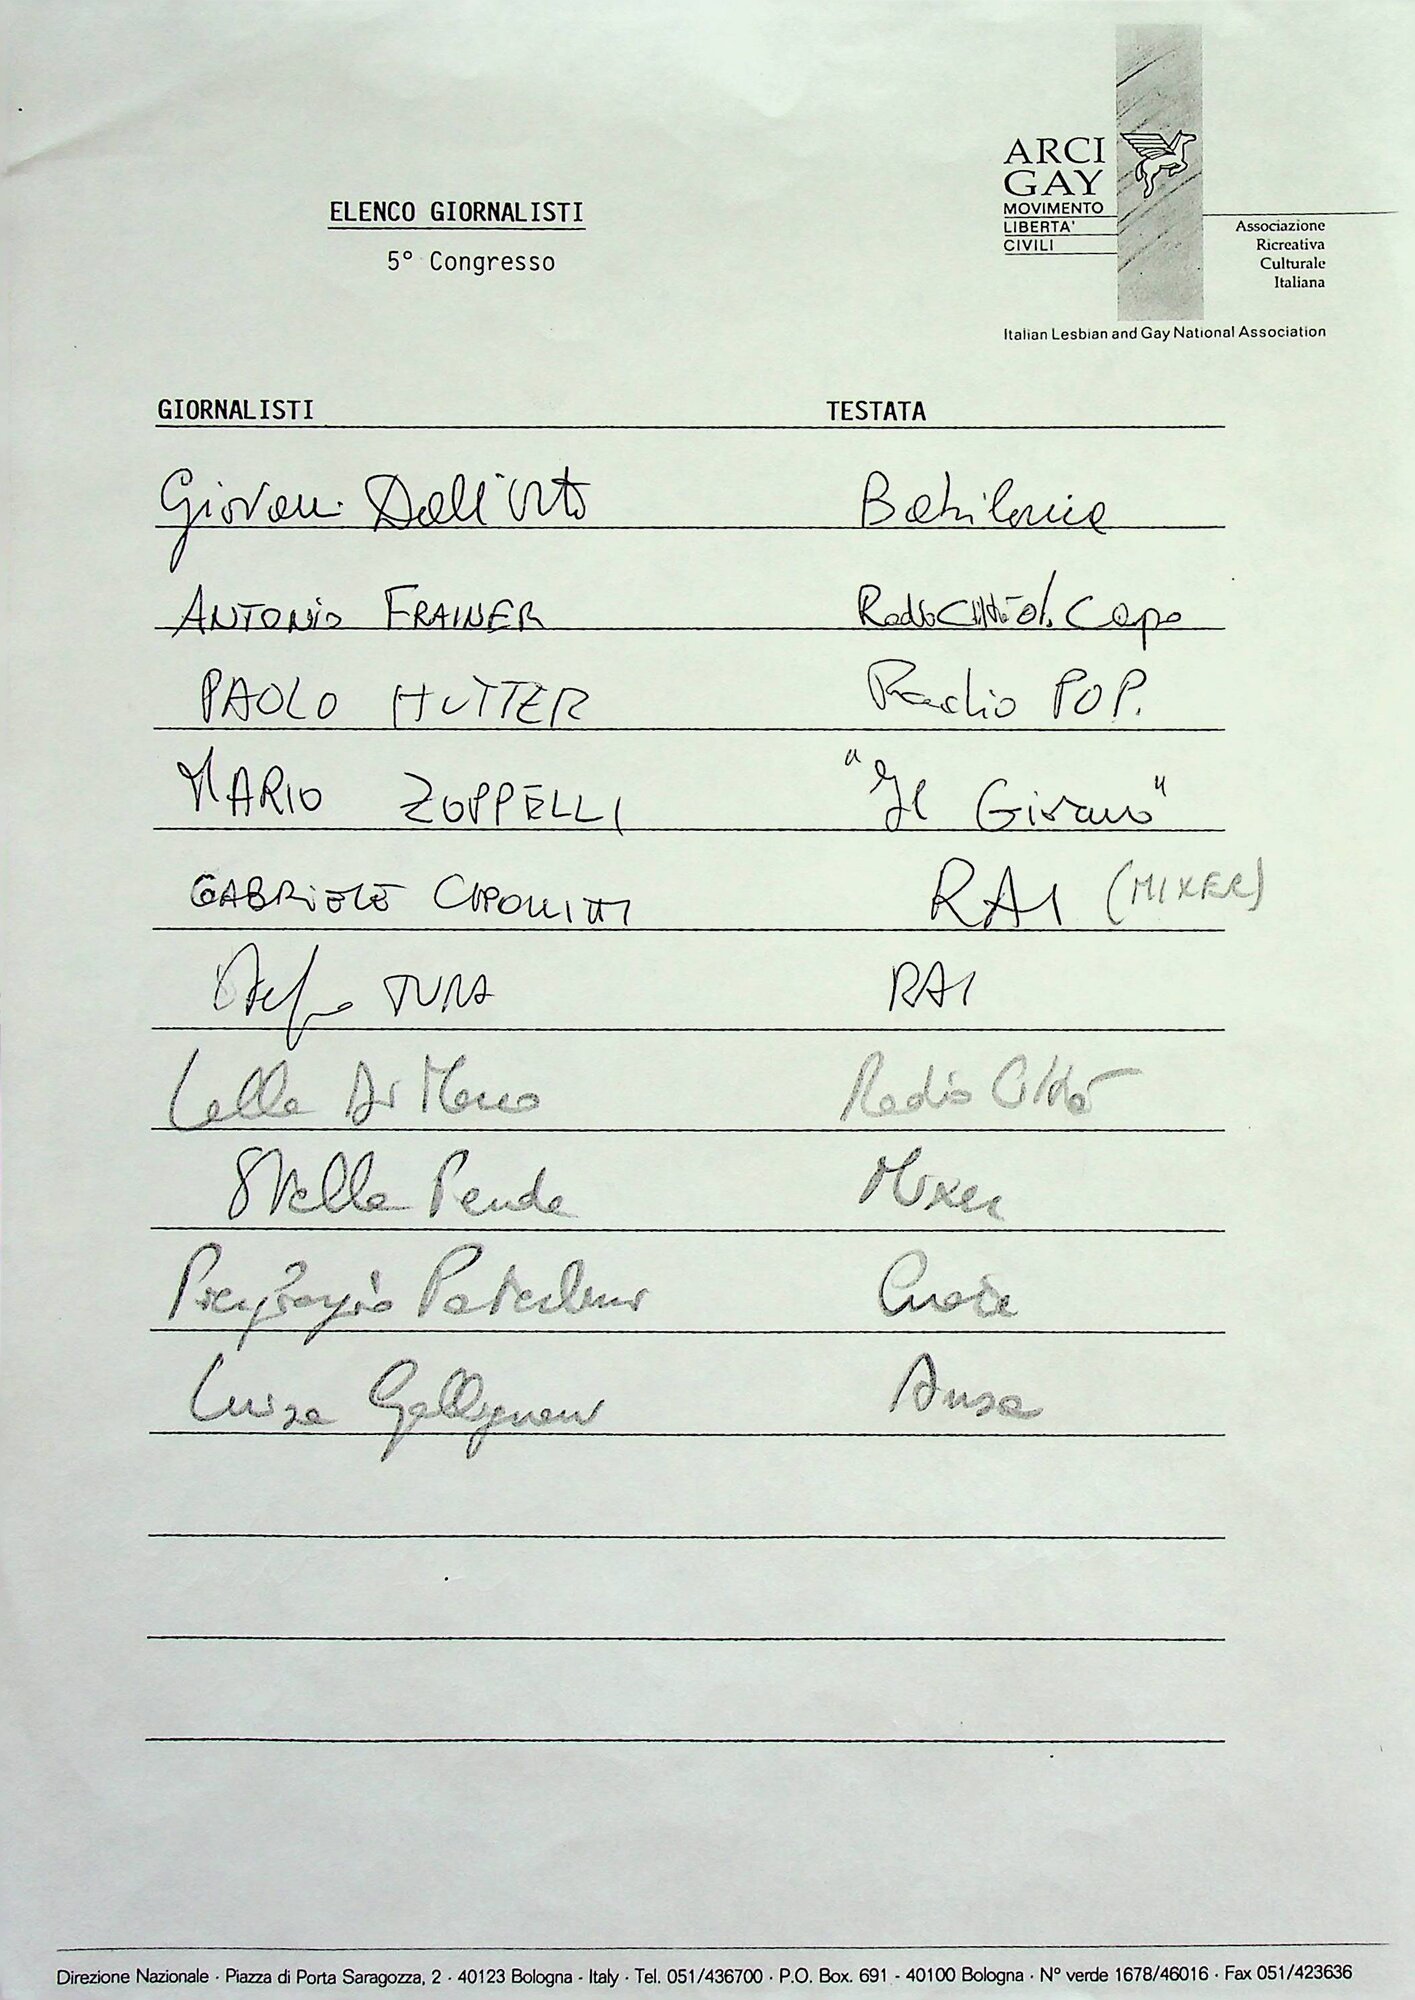 ARCI
GAY
MOVIMENTO
LIBERTA'
CIVILI
Associazione
Ricreativa
Culturale
Italiana
Italian Lesbian and Gay National Association
ELENCO GIORNALISTI
5° Congresso
GIORNALISTI TESTATA
Giovanni Dall'Orto Babilonia
ANTONIO FRAINER Radio Città d. Capo
PAOLO HUTTER Radio POP.
MARIO ZOPPELLI "Il Giorno"
GABRIELE CIPOLLITTI RAI (MIXER)
Stefano TURA RAI
Lella Di Marco Radio Città
Stella Pende Mixer
Piergiorgio Paterlini Cuore
Luisa Ansa
Direzione Nazionale · Piazza di Porta Saragozza, 2 · 40123 Bologna - Italy · Tel. 051/436700 · P.O. Box. 691 - 40100 Bologna · N° verde 1678/46016 · Fax 051/423636